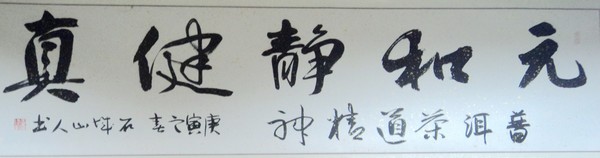 元和静健真
普洱茶道精神
庚寅之春石城山人书